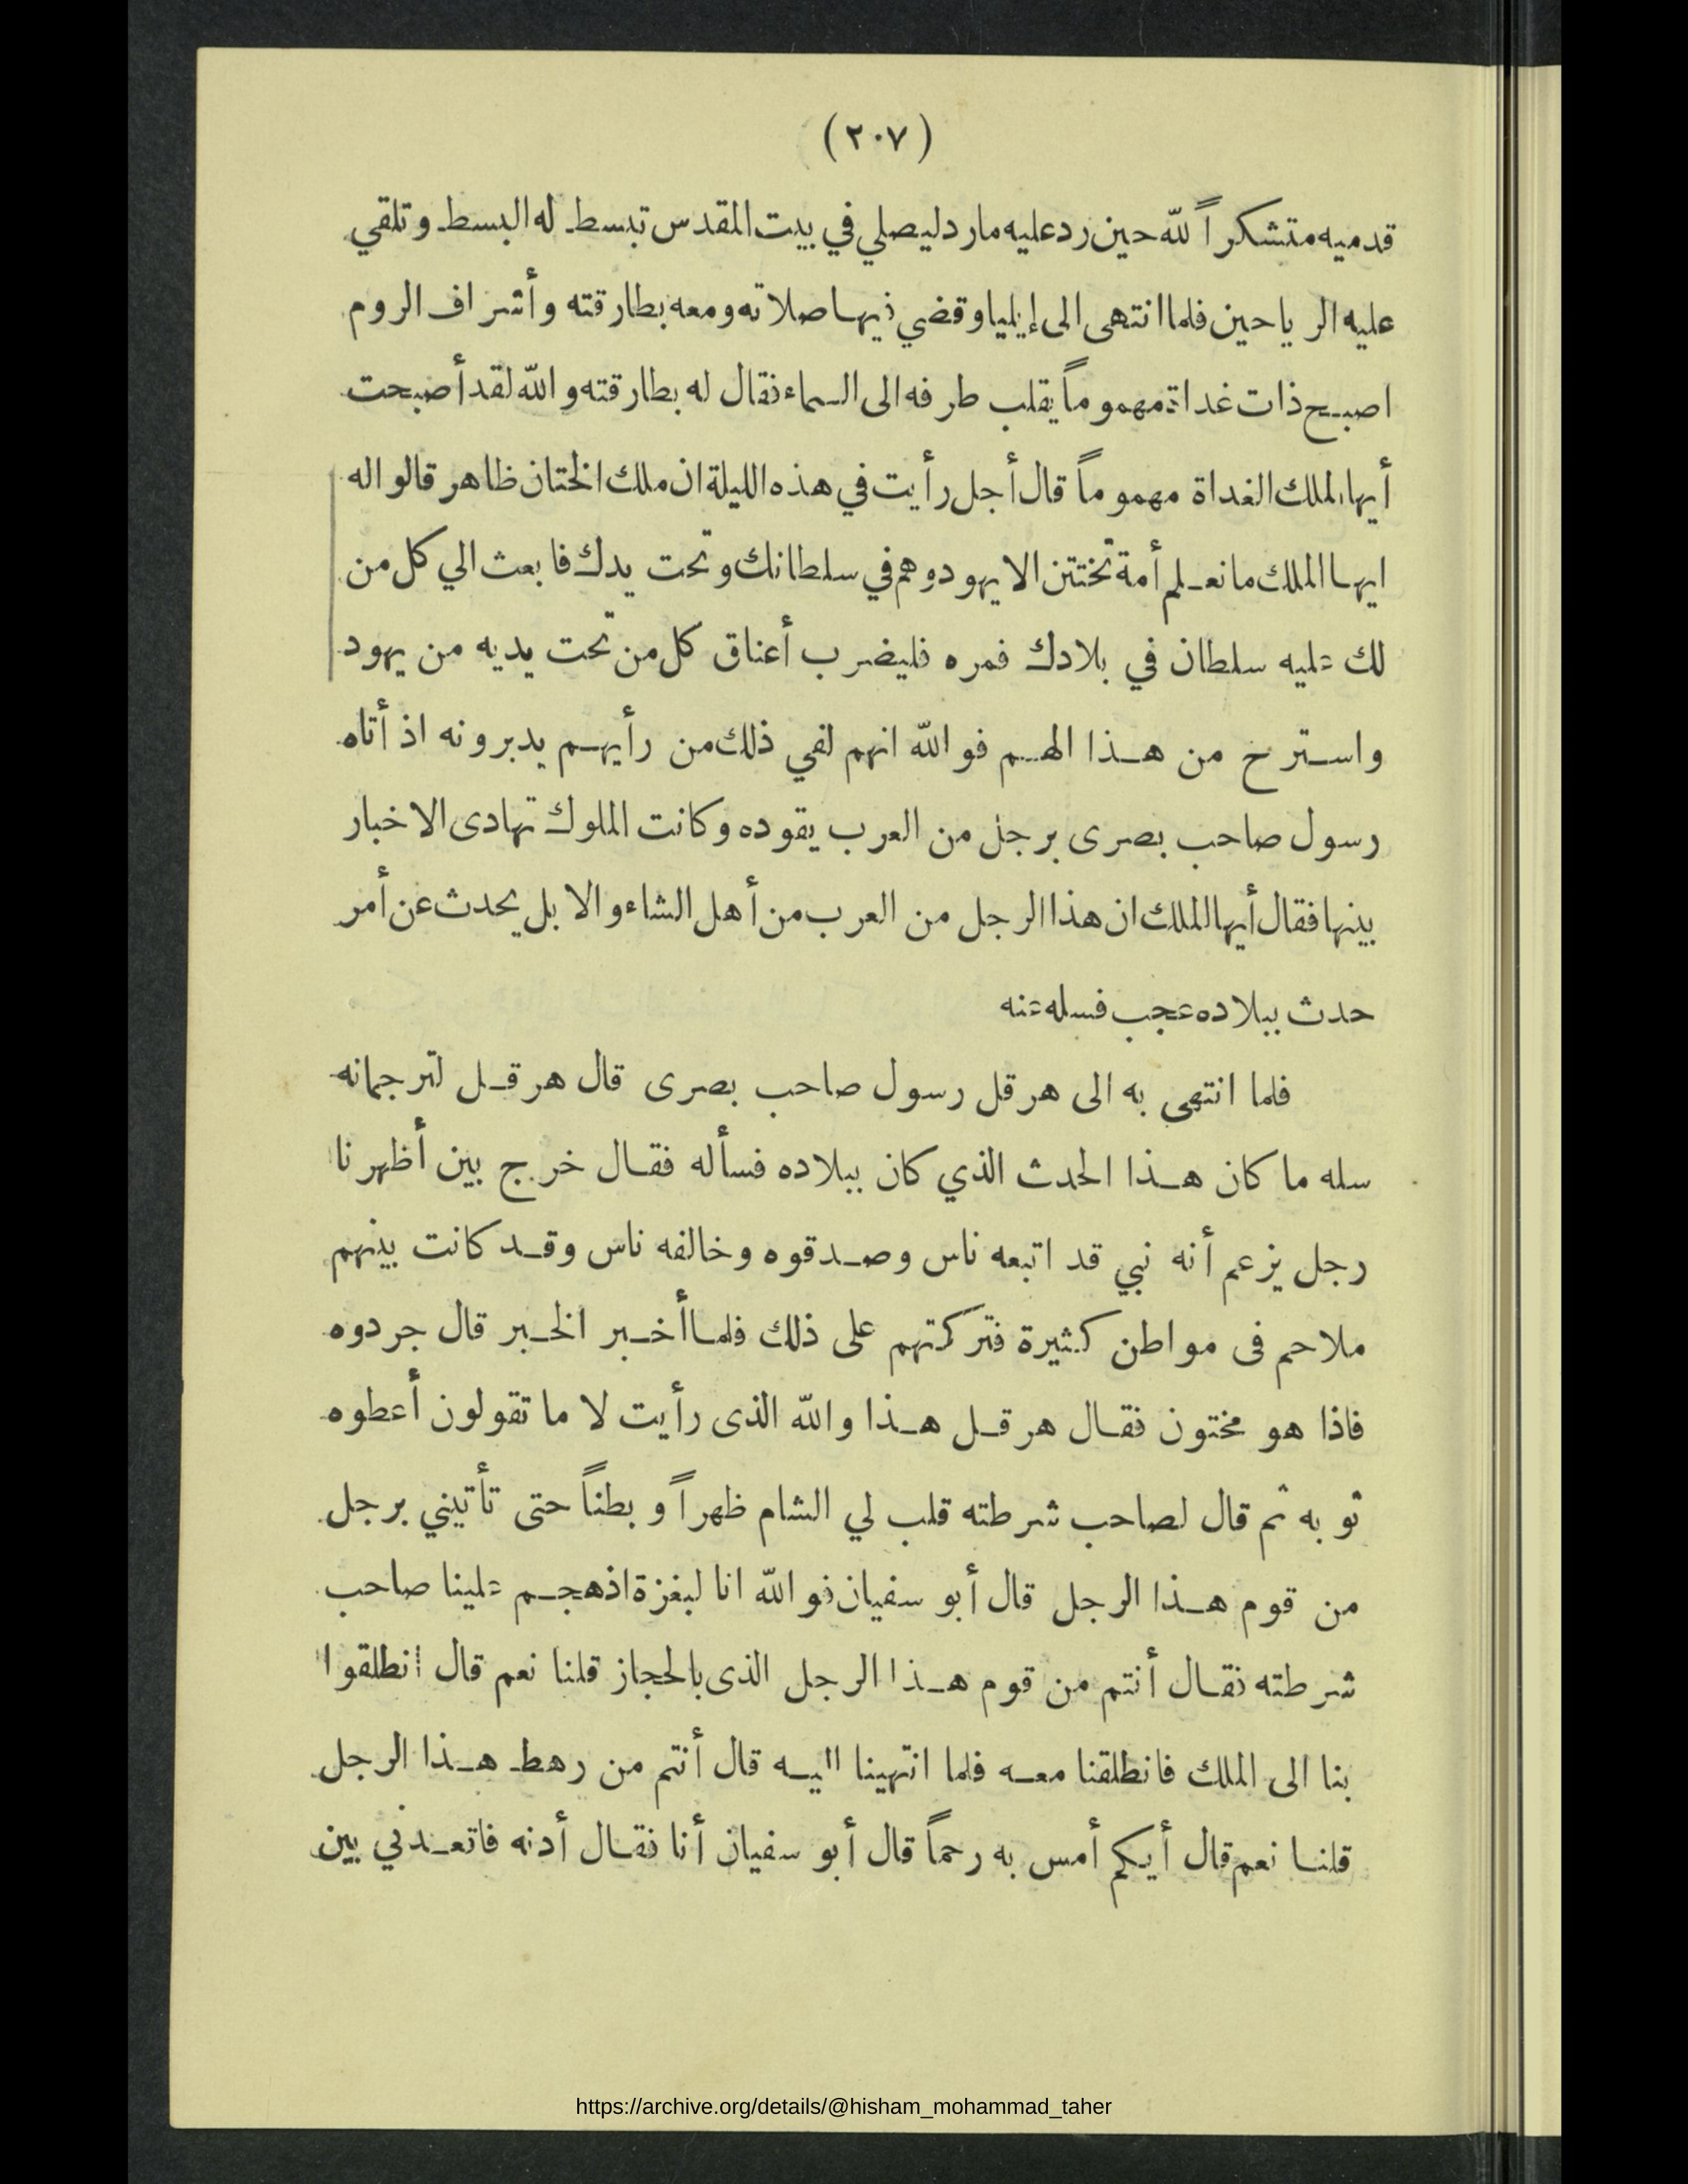 (٢٠٧)
قدميه متشكراً لله حين رد عليه مارد ليصلي في بيت المقدس تبسط له البسط وتلقي
عليه الرياحين فلما انتهى الى إيليا وقضي فيها صلاته ومعه بطارقته وأشراف الروم
اصبح ذات غداة مهموماً يقلب طرفه الى السماء فقال له بطارقته والله لقد أصبحت
أيها الملك الغداة مهموماً قال أجل رأيت في هذه الليلة ان ملك الختان ظاهر قالوا له
ايها الملك ما نعلم أمة تختتن الا يهود وهم في سلطانك وتحت يدك فابعث الي كل من
لك عليه سلطان في بلادك فمره فليضرب أعناق كل من تحت يديه من يهود
واسترح من هذا الهم فوالله انهم لفي ذلك من رأيهم يدبرونه اذ أتاه
رسول صاحب بصرى برجل من العرب يقوده وكانت الملوك تهادى الاخبار
بينها فقال أيها الملك ان هذا الرجل من العرب من أهل الشاء والابل يحدث عن أمر
حدث ببلاده عجب فسله عنه
فلما انتهى به الى هرقل رسول صاحب بصرى قال هرقل لترجمانه
سله ما كان هذا الحدث الذي كان ببلاده فسأله فقال خرج بين أظهرنا
رجل يزعم أنه نبي قد اتبعه ناس وصدقوه وخالفه ناس وقد كانت بينهم
ملاحم فى مواطن كثيرة فتركتهم على ذلك فلما أخبر الخبر قال جردوه
فاذا هو مختون فقال هرقل هذا والله الذى رأيت لا ما تقولون أعطوه
ثوبه ثم قال لصاحب شرطته قلب لي الشام ظهراً وبطناً حتى تأتيني برجل
من قوم هذا الرجل قال أبو سفيان فوالله انا لبغزة اذ هجم علينا صاحب
شرطته فقال أنتم من قوم هذا الرجل الذى بالحجاز قلنا نعم قال انطلقوا
بنا الى الملك فانطلقنا معه فلما انتهينا اليه قال أنتم من رهط هذا الرجل
قلنا نعم قال أيكم أمس به رحماً قال أبو سفيان أنا فقال أدنه فاتعدني بين
https://archive.org/details/@hisham_mohammad_taher